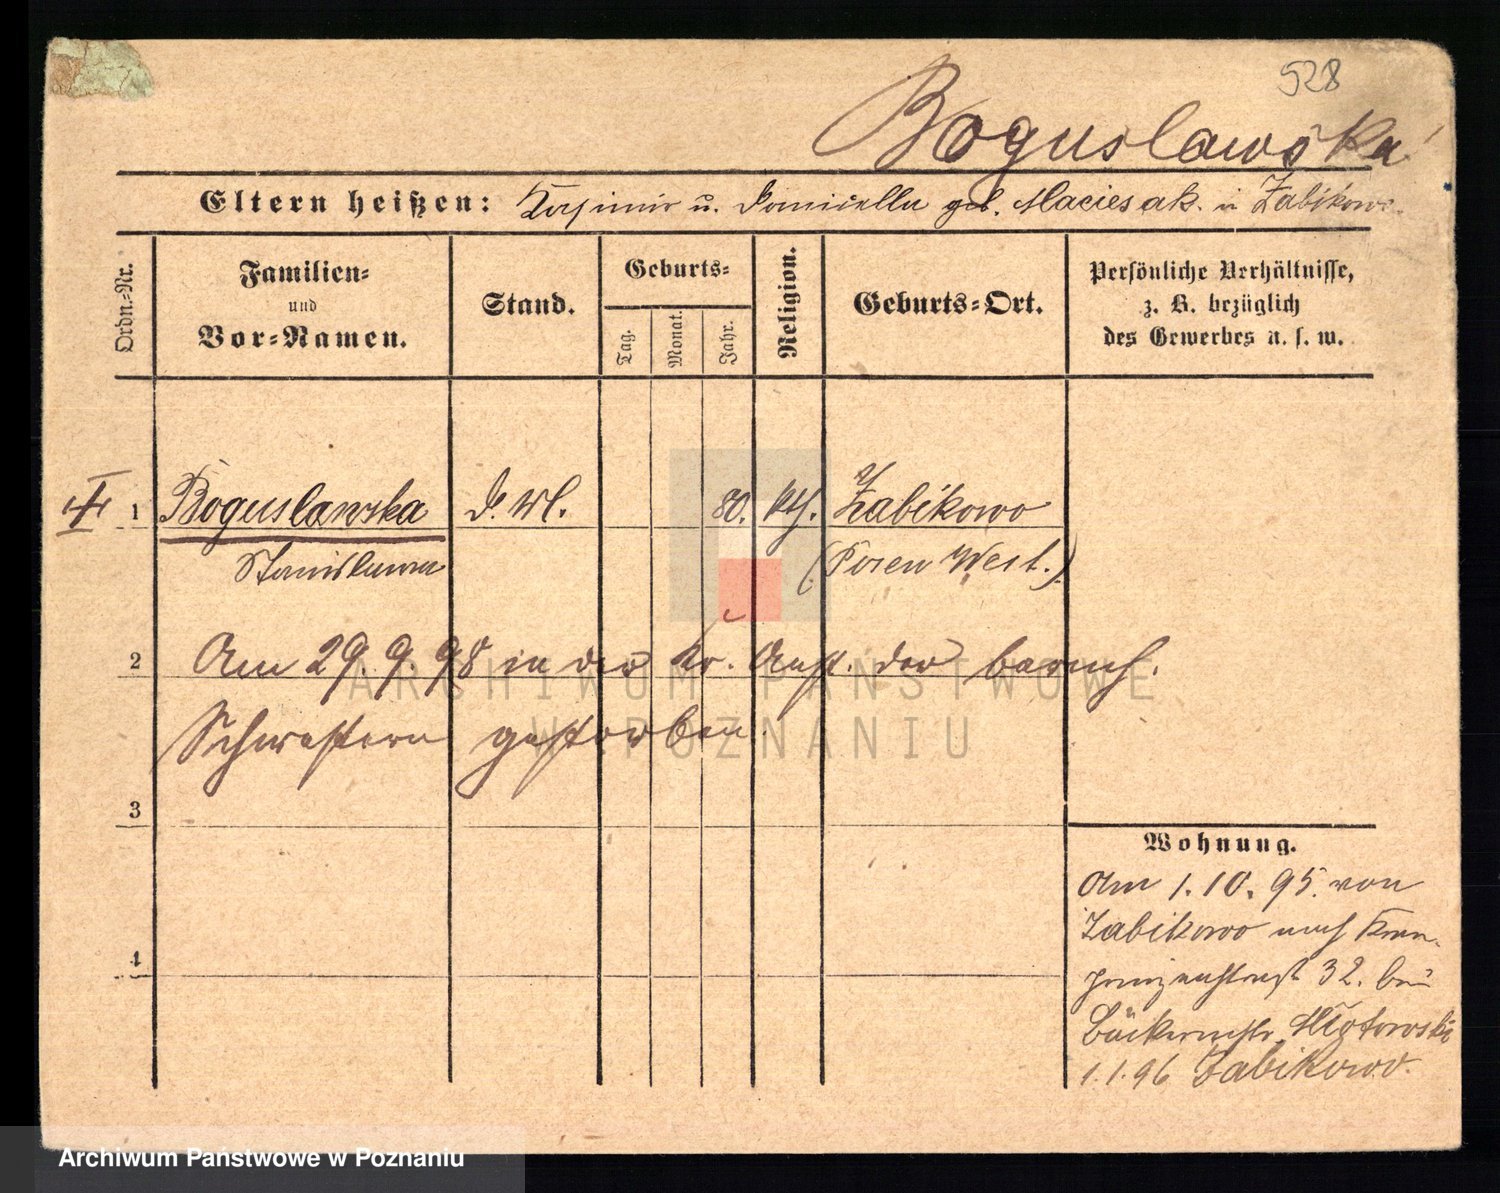 528
Boguslawska
Eltern heißen: Kasimir u. Domicella geb. Maciesak. in Zabikowo.
Ordn.-Nr.
Familien-
und
Vor-Namen.
Stand.
Geburts-
Tag.
Monat.
Jahr.
Religion.
Geburts-Ort.
Persönliche Verhältnisse,
z. B. bezüglich
des Gewerbes u. s. w.
1 Boguslawska 80. kth. Zabikowo
Stanislawa (Posen West.)
2 Am 29. 9. 98 in der Kr. Anst. der barmh.
Schwestern gestorben.
3
4
Wohnung.
Am 1. 10. 95. von
Zabikowo nach Kron-
prinzenstraße 32. bei
Bäckermstr.
1.1.96 Zabikowo.
ARCHIWUM PAŃSTWOWE
W POZNANIU
Archiwum Państwowe w Poznaniu